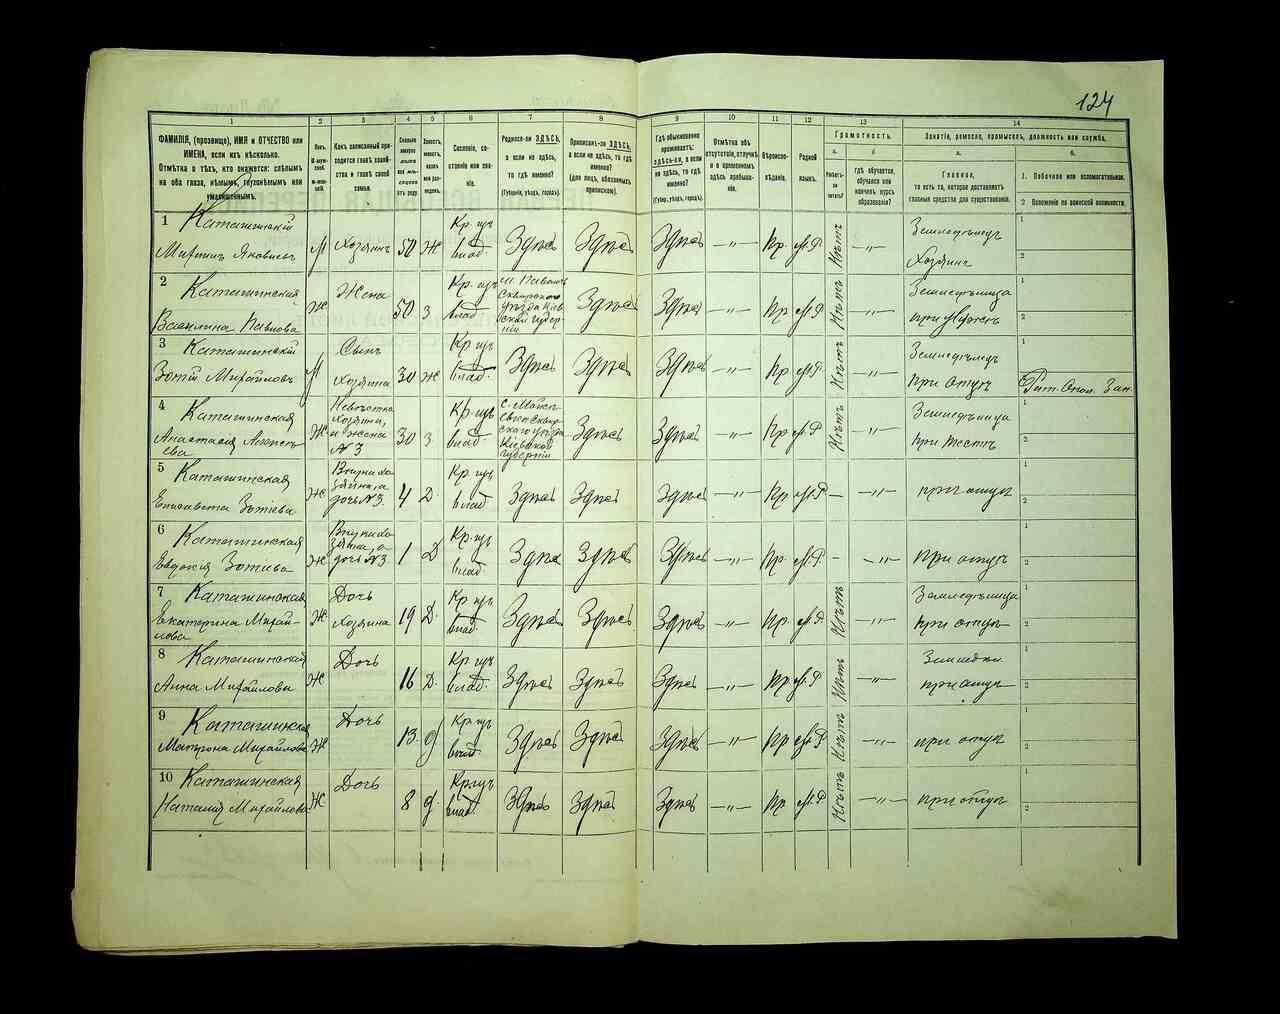 124
1
2
3
4
5
6
7
8
9
10
11
12
13
14
ФАМИЛІЯ, (прозвище), ИМЯ и ОТЧЕСТВО или
ИМЕНА, если ихъ нѣсколько.
Отмѣтка о тѣхъ, кто окажется: слѣпымъ
на оба глаза, нѣмымъ, глухонѣмымъ или
умалишеннымъ.
Какъ записанный при-
ходится главѣ хозяй-
ства и главѣ своей
семьи.
Сословіе, со-
стояніе или зва-
ніе.
Родился-ли ЗДѢСЬ,
а если не здѣсь,
то гдѣ именно?
(Губернія, уѣздъ, городъ).
Приписанъ-ли ЗДѢСЬ,
а если не здѣсь, то гдѣ
именно?
(для лицъ, обязанныхъ
припискою).
Гдѣ обыкновенно
проживаетъ:
здѣсь-ли, а если
не здѣсь, то гдѣ
именно?
(Губер., уѣздъ, городъ).
Отмѣтка объ
отсутствіи, отлучкѣ
и о временномъ
здѣсь пребыва-
ніи.
Вѣроиспо-
вѣданіе.
Родной
языкъ.
Грамотность.
а.
Умѣетъ-
ли
читать?
б.
гдѣ обучается,
обучался или
кончилъ курсъ
образованія?
Занятіе, ремесло, промыселъ, должность или служба.
а.
Главное,
то есть то, которое доставляетъ
главныя средства для существованія.
б.
1. Побочное или вспомогательное.
2 Положеніе по воинской повинности.
1
Каташинскій
Михаилъ Яковлевъ
М
Хозяинъ
50
Ж
Кр. изъ
влад.
Здѣсь
Здѣсь
Здѣсь
—"—
Пр.
М.Р
Нѣтъ
—"—
Земледѣлецъ
Хозяинъ
1
2
2
Каташинская
Василина Павлова
Ж
Жена
50
З
Кр. изъ
влад.
Сквирскаго
уѣзда Кіев
ской губер-
ніи
Здѣсь
Здѣсь
—"—
Пр
М.Р
Нѣтъ
—"—
Земледѣлица
при мужѣ
1
2
3
Каташинскій
Зотій Михайловъ
М
Сынъ
Хозяина
30
Ж
Кр изъ
влад.
Здѣсь
Здѣсь
Здѣсь
—"—
Пр
М.Р
Нѣтъ
—"—
Земледѣлецъ
при отцѣ
1
Рат. Опол. Зап.
4
Каташинская
Анастасія Алексѣ
ева
Ж
Невѣстка
хозяина,
и жена
№ 3
30
З
Кр. изъ
влад.
Сквир-
скаго уѣзда
Кіевской
губерніи
Здѣсь
Здѣсь
—"—
Пр
М.Р
Нѣтъ
—"—
Земледѣлица
при тестѣ
1
2
5
Каташинская
Елисавета Зотіева
Ж
Внучка хо
зяина, а
дочь №3.
4
Д.
Кр изъ
влад
Здѣсь
Здѣсь
Здѣсь
—"—
Пр.
М.Р
—
—"—
при отцѣ
1
2
6
Каташинская
Евдокія Зотіева
Ж
Внучка хо
зяина, а
дочь №3
1
Д
Кр. изъ
влад.
Здѣсь
Здѣсь
Здѣсь
—"—
Пр.
М.Р
—
—"—
при отцѣ
1
2
7
Каташинская
Екатерина Михай-
лова
Ж
Дочь
Хозяина
19
Д.
Кр изъ
влад.
Здѣсь
Здѣсь
Здѣсь
—"—
Пр.
М.Р
Нѣтъ
—"—
Земледѣлица
при отцѣ
1
2
8
Каташинская
Анна Михайлова
Ж
Дочь
16
Д.
Кр изъ
влад.
Здѣсь
Здѣсь
Здѣсь
—"—
Пр
М.Р
Нѣтъ
—"—
при отцѣ
1
2
9
Каташинская
Матрона Михайлова
Ж
Дочь
13
д
Кр изъ
влад
Здѣсь
Здѣсь
Здѣсь
—"—
Пр
М.Р
Нѣтъ
—"—
при отцѣ
1
2
10
Каташинская
Наталія Михайлова
Ж
Дочь
8
д.
Кр изъ
влад.
Здѣсь
Здѣсь
Здѣсь
—"—
Пр
М.Р
Нѣтъ
—"—
при отцѣ
1
2